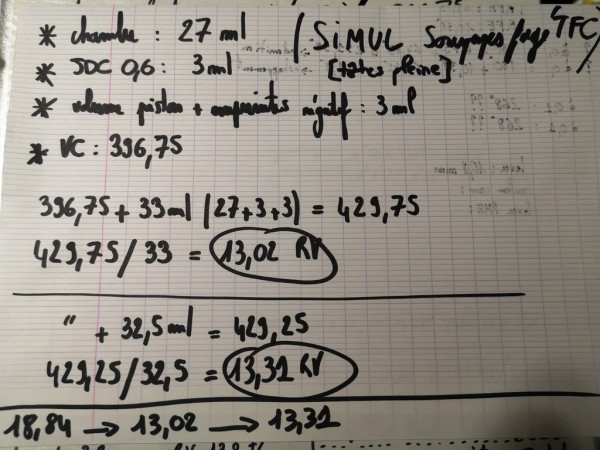 * chambre : 27 ml ( SIMUL Soupapes/page TFC)
* JDC 0,6 : 3 ml [têtes pleine]
* volume piston + empreintes négatif : 3 ml
* VC : 396,75
396,75 + 33 ml (27+3+3) = 429,75
429,75 / 33 = 13,02 RV
" + 32,5 ml = 429,25
429,25 / 32,5 = 13,31 RV
18,84 → 13,02 → 13,31